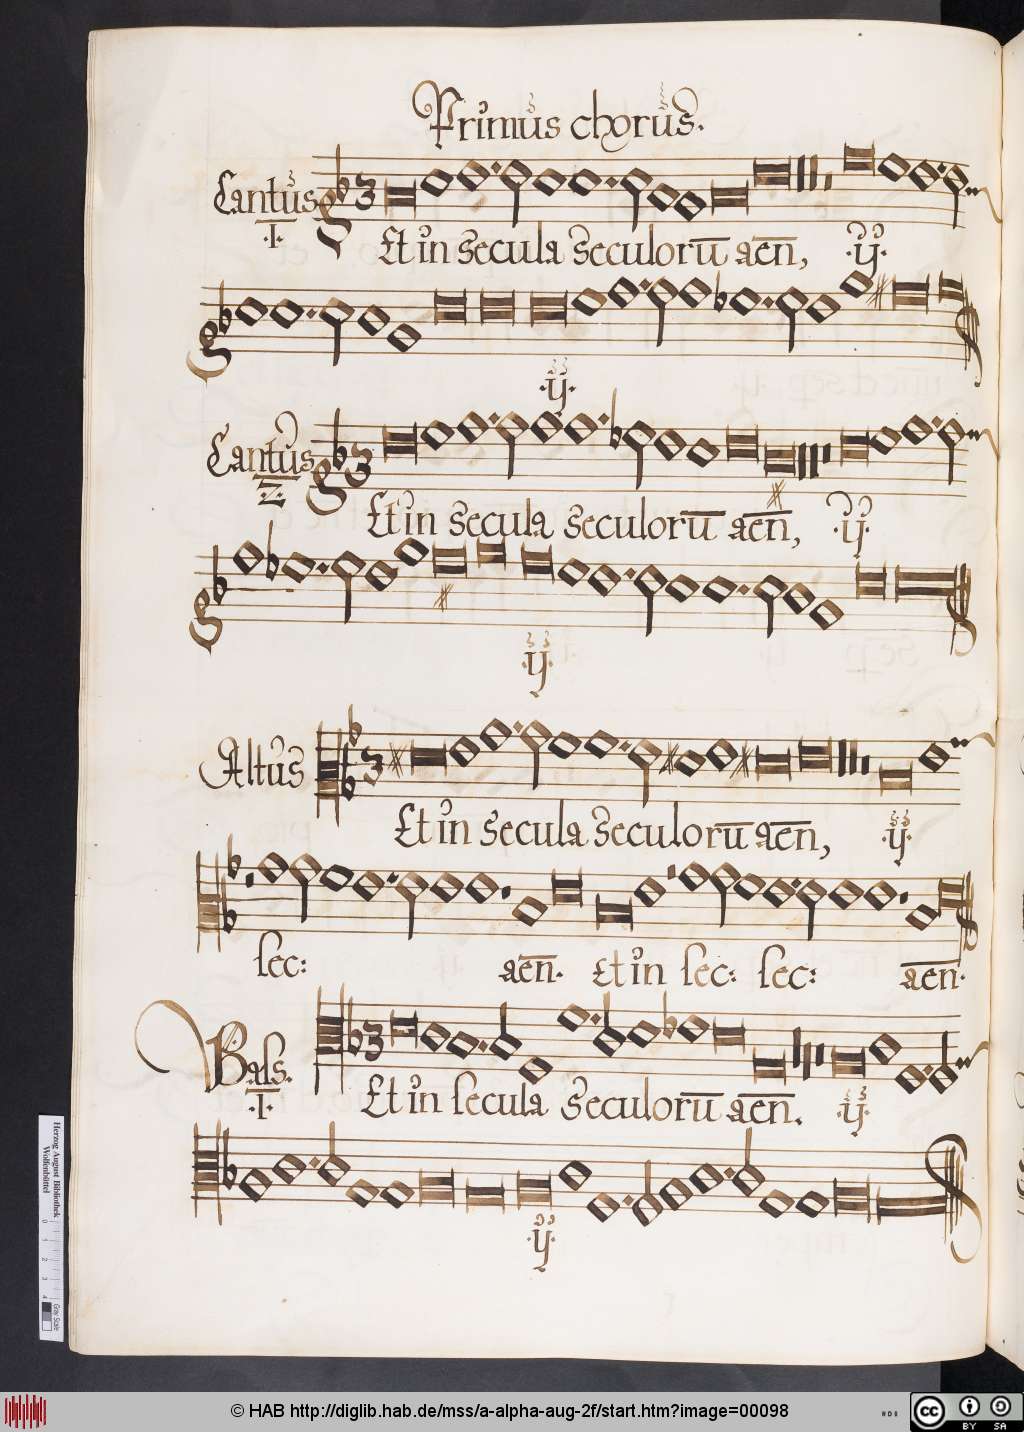 Primus chorus.
Cantus
.I.
Et in secula seculorū aen̄, .ij.
.ij.
Cantus
.2.
Et in secula seculorū aen̄, .ij.
.ij.
Altus
Et in secula seculorū aen̄, .ij.
sec: aen̄. Et in sec: sec: aen̄.
Bass.
.I.
Et in secula seculorū aen̄. .ij.
.ij.
Herzog August Bibliothek
Wolfenbüttel
0 1 2 3 4 Gray Scale
© HAB http://diglib.hab.de/mss/a-alpha-aug-2f/start.htm?image=00098
HAB
cc BY SA